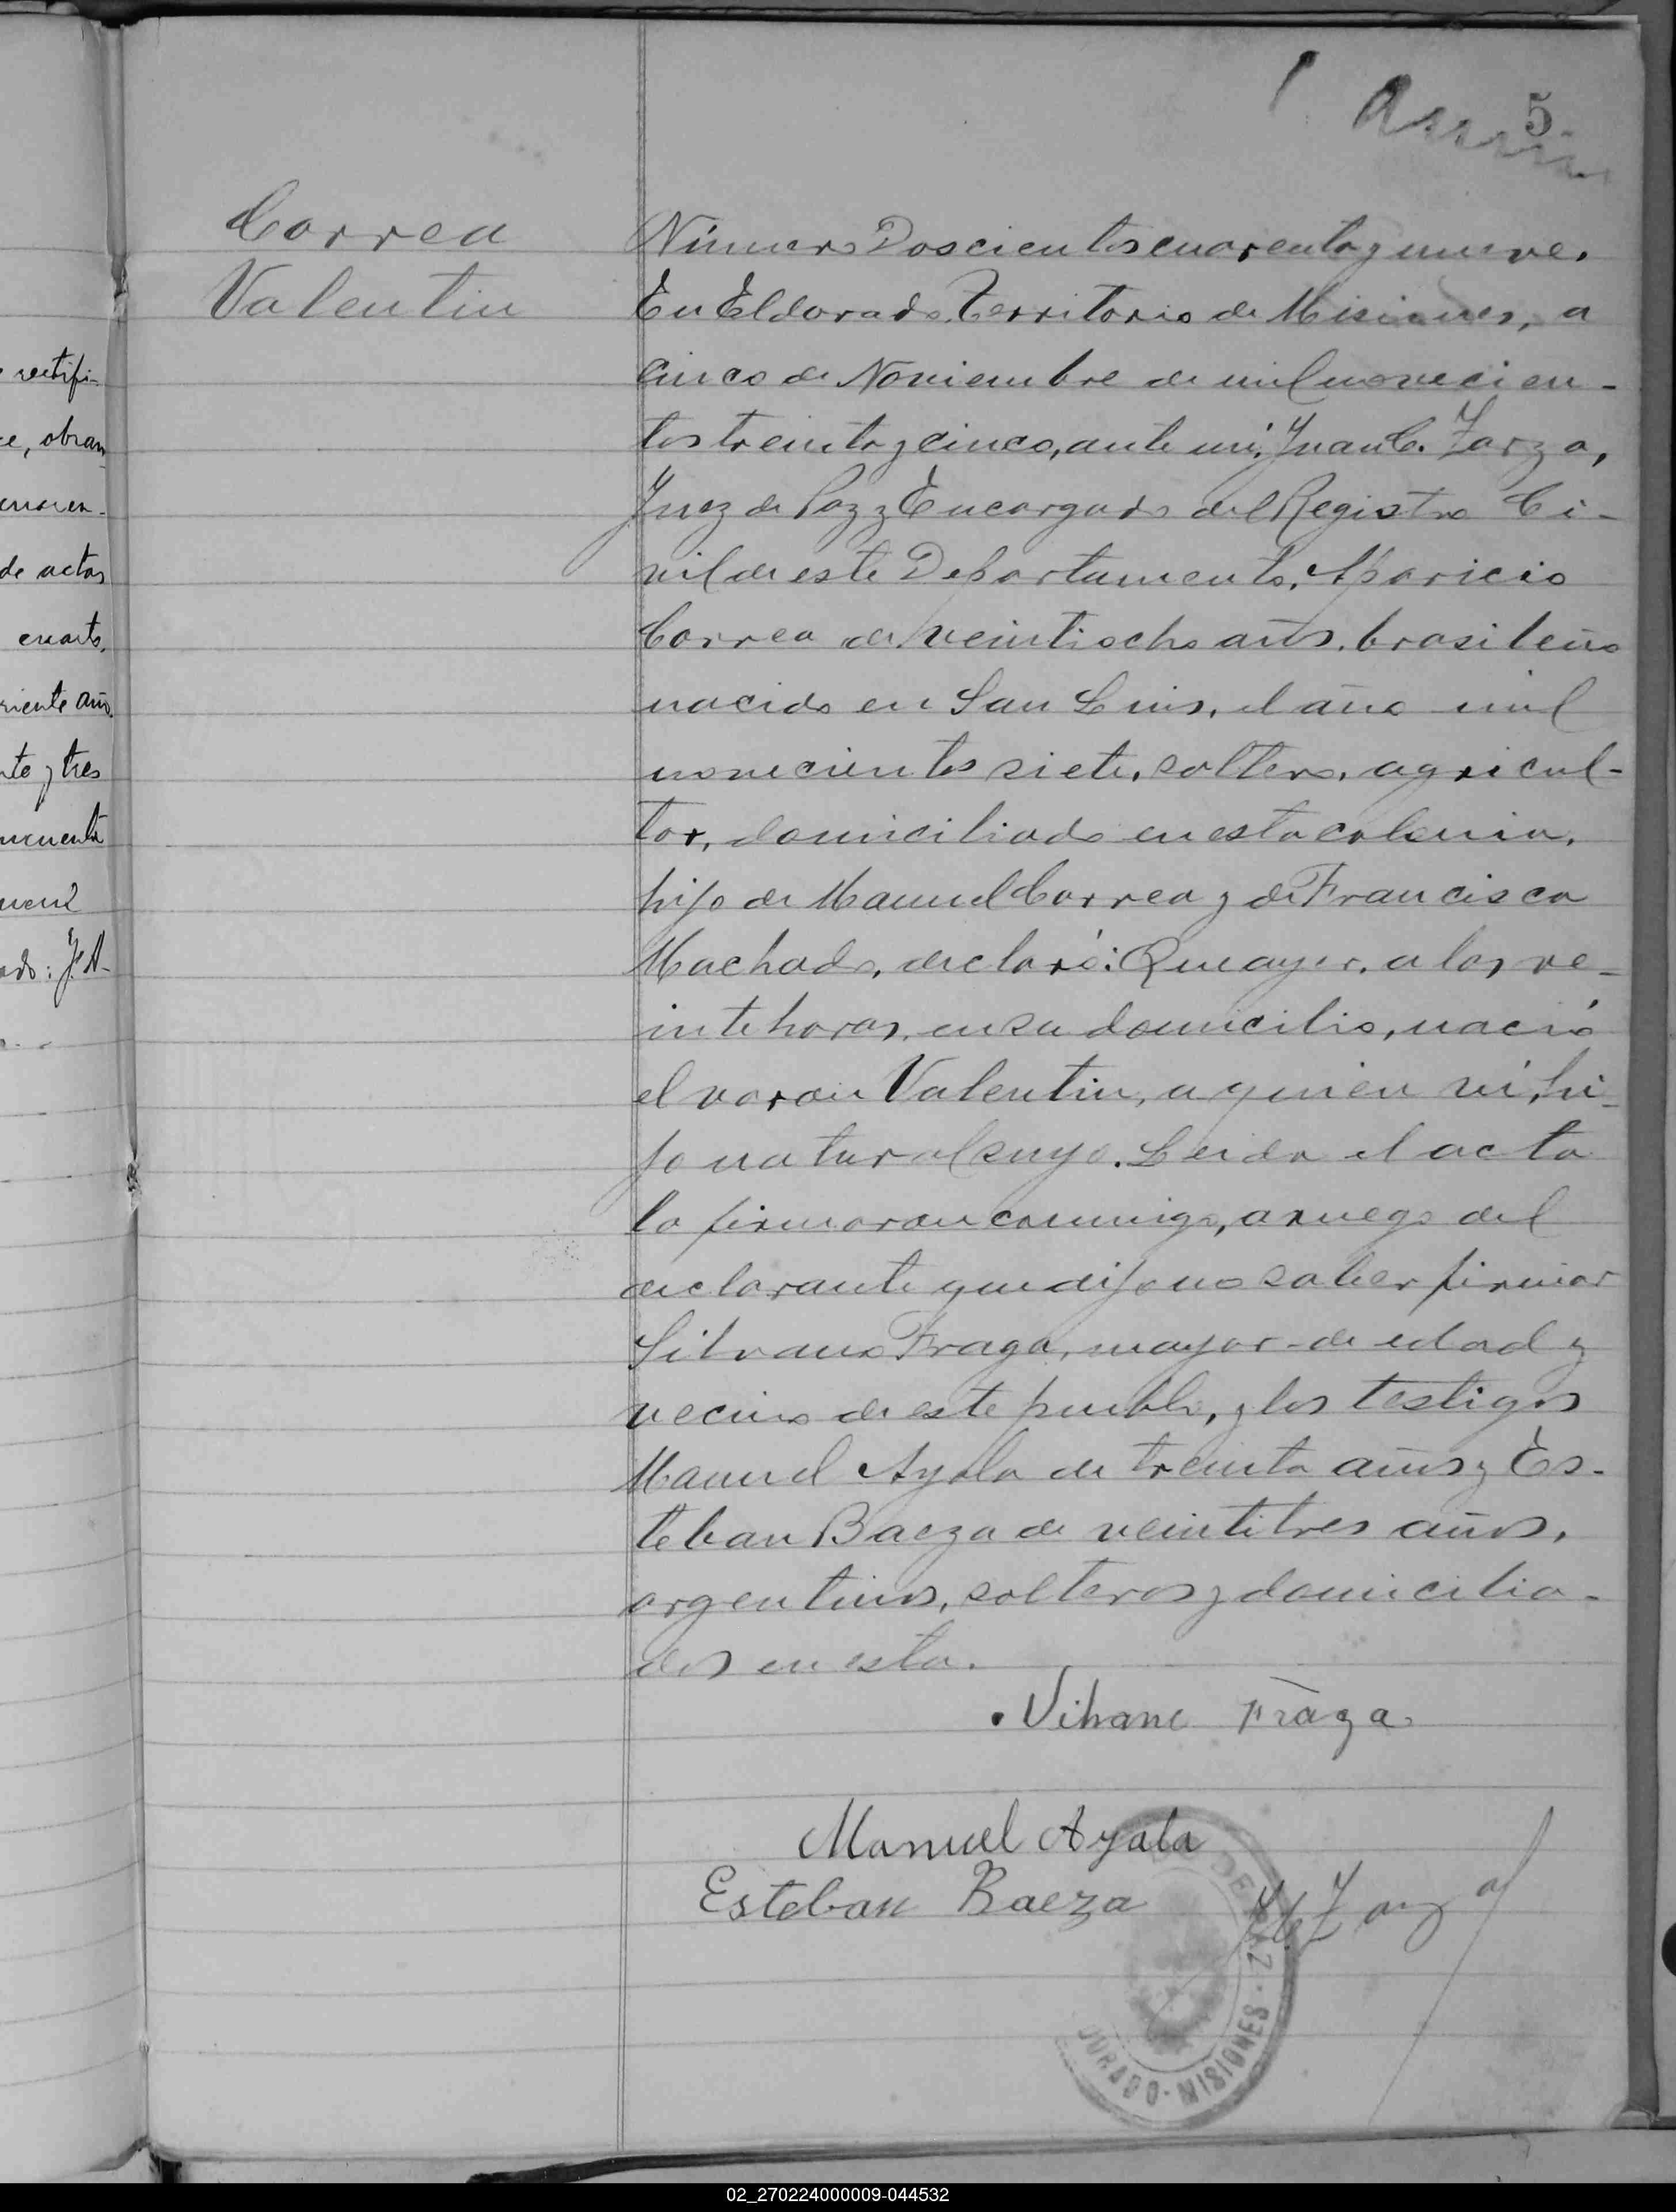 5
Correa
Valentin
Número Doscientos cuarenta y nueve.
En Eldorado, Territorio de Misiones, a
cinco de Noviembre de mil novecien-
tos treinta y cinco, ante mi, Juan C. Zarza,
Juez de Paz y Encargado del Registro Ci-
vil de este Departamento, Aparicio
Correa de veintiocho años, brasileño
nacido en San Luis, el año mil
novecientos siete, soltero, agricul-
tor, domiciliado en esta colonia,
hijo de Manuel Correa y de Francisca
Machado, declaró: Que ayer, a las ve-
inte horas, en su domicilio, nació
el varon Valentin, a quien vi, hi-
jo natural suyo. Leida el acta
la firmaron conmigo, a ruego del
declarante que dijo no saber firmar
Silvano Fraga, mayor de edad y
vecino de este pueblo, y los testigos
Manuel Ayala de treinta años y Es-
teban Baeza de veintitres años,
argentinos, solteros y domicilia-
dos en esta.
Fraga
Manuel Ayala
Esteban Baeza
Zarza
MISIONES
rectifi-
de actas
cuarto,
riente año
nte y tres
02_270224000009-044532